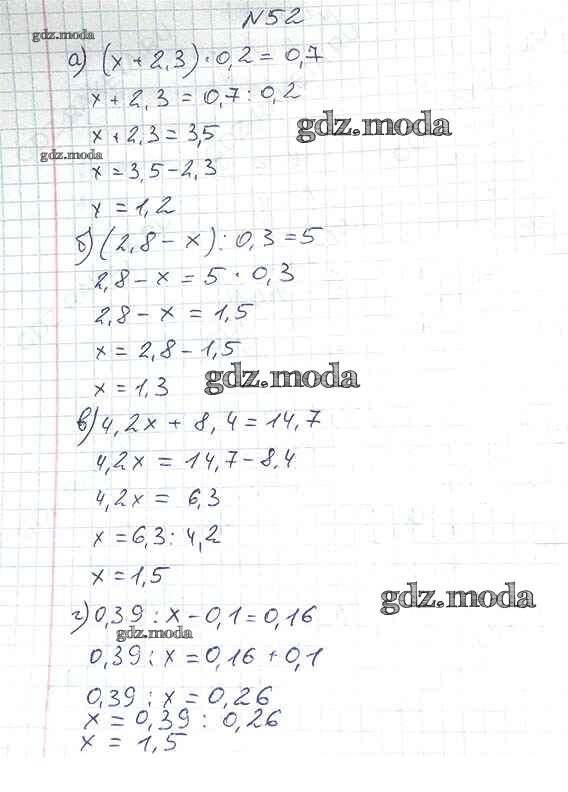 N52
gdz.moda
а) (x + 2,3) · 0,2 = 0,7
x + 2,3 = 0,7 : 0,2
gdz.moda
x + 2,3 = 3,5
gdz.moda
x = 3,5 - 2,3
x = 1,2
б) (2,8 - x) : 0,3 = 5
2,8 - x = 5 · 0,3
2,8 - x = 1,5
x = 2,8 - 1,5
gdz.moda
x = 1,3
в) 4,2x + 8,4 = 14,7
4,2x = 14,7 - 8,4
4,2x = 6,3
x = 6,3 : 4,2
x = 1,5
gdz.moda
г) 0,39 : x - 0,1 = 0,16
gdz.moda
0,39 : x = 0,16 + 0,1
0,39 : x = 0,26
x = 0,39 : 0,26
x = 1,5